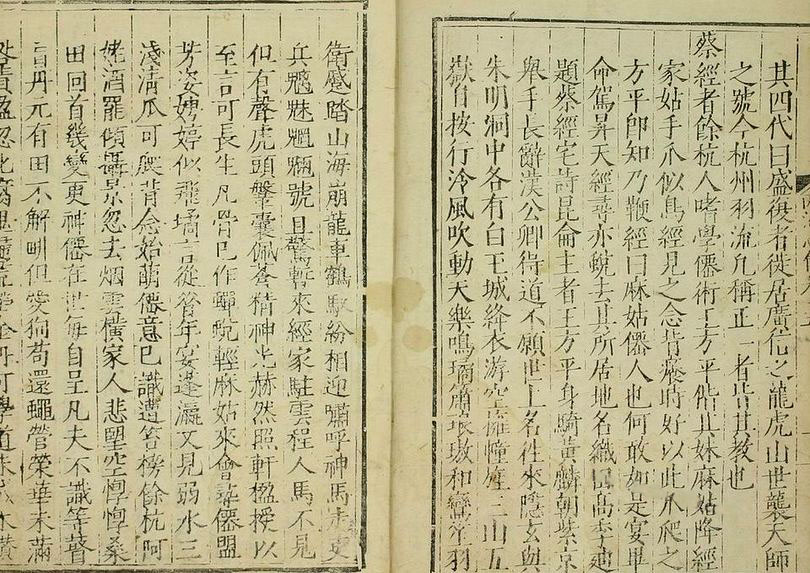 其四代曰盛復者徙居廣信之龍虎山世襲天師
之號今杭州羽流凡稱正一者皆其教也
蔡經者餘杭人嗜學僊術王方平偕其妹麻姑降經
家姑手爪似鳥經見之念背癢時好以此爪爬之
方平即知乃鞭經曰麻姑僊人也何敢如是宴畢
命駕昇天經尋亦蛻去其所居地名織
題蔡經宅詩昆侖主者王方平身騎黃麟朝紫京
舉手長辭漢公卿得道不願世上名往來隱玄與
朱明洞中各有白玉城絳衣游空擁幢旌三山五
嶽自按行泠風吹動天樂鳴璚簫琅璈和鸞笙羽
衛蹙踏山海崩龍車鶴馭紛相迎嘯呼神馬走
兵魑魅魍魎號且驚暫來經家駐雲程人馬不見
但有聲虎頭鞶囊佩蒼精神光赫然照軒楹授以
至言可長生凡骨已作蟬蛻輕麻姑來會羣僊盟
芳姿娉婷似飛瓊言從昔年宴蓬瀛又見弱水三
淺清瓜可爬背念始萌僊意已識遭笞榜餘杭阿
姥酒罷傾攝景忽去烟雲橫家人悲望空惸惸桑
田回首幾變更神僊在世每自呈凡夫不識等瞽
盲丹元有田不解畊但愛狗苟還蠅營榮華未滿